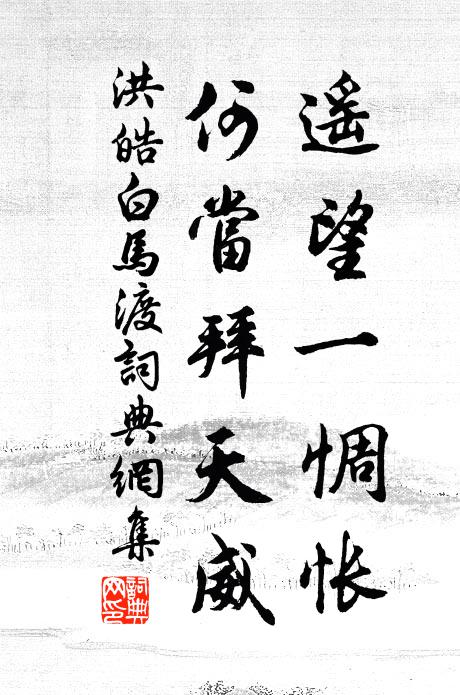 遙望一惆悵
何當拜天威
洪皓白馬渡詞典網集
詞典网印